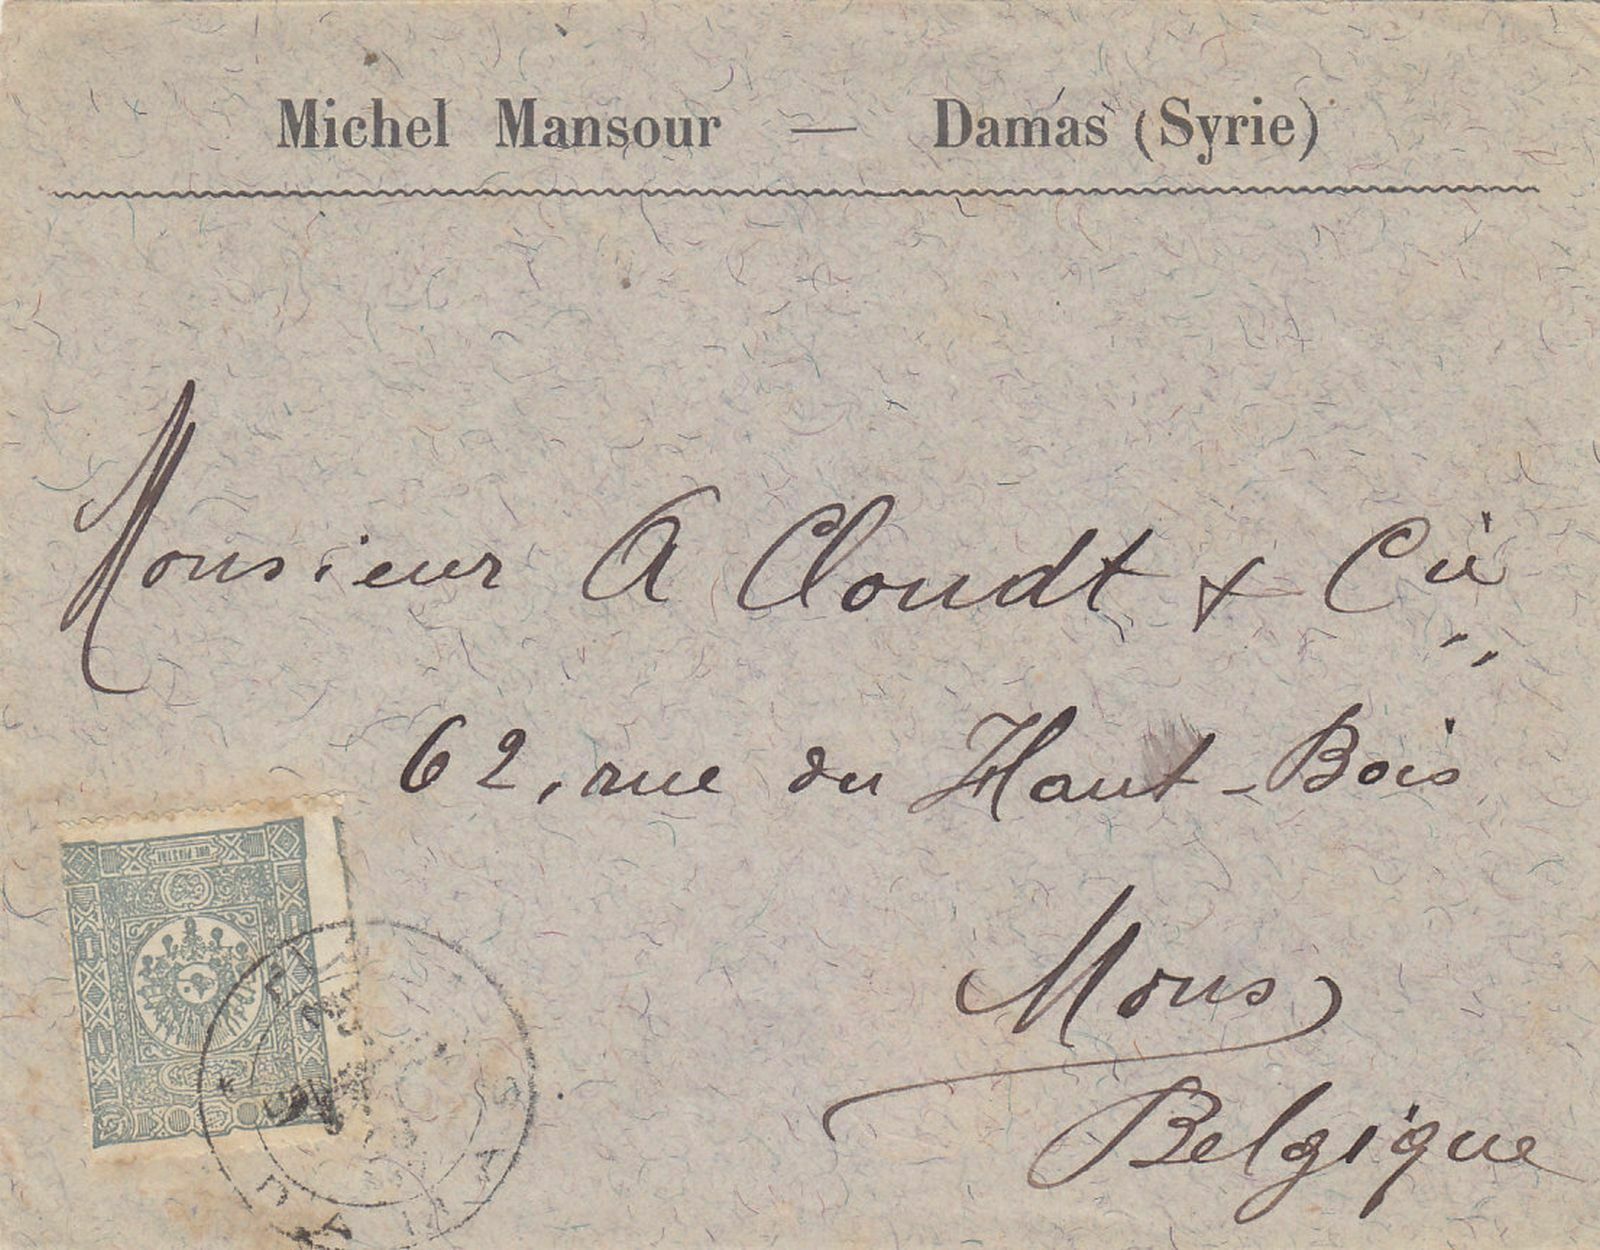 Michel Mansour — Damas (Syrie)
Monsieur A Cloudt & Cie
62, rue du Haut-Bois
Mons
Belgique
UNE PIASTRE